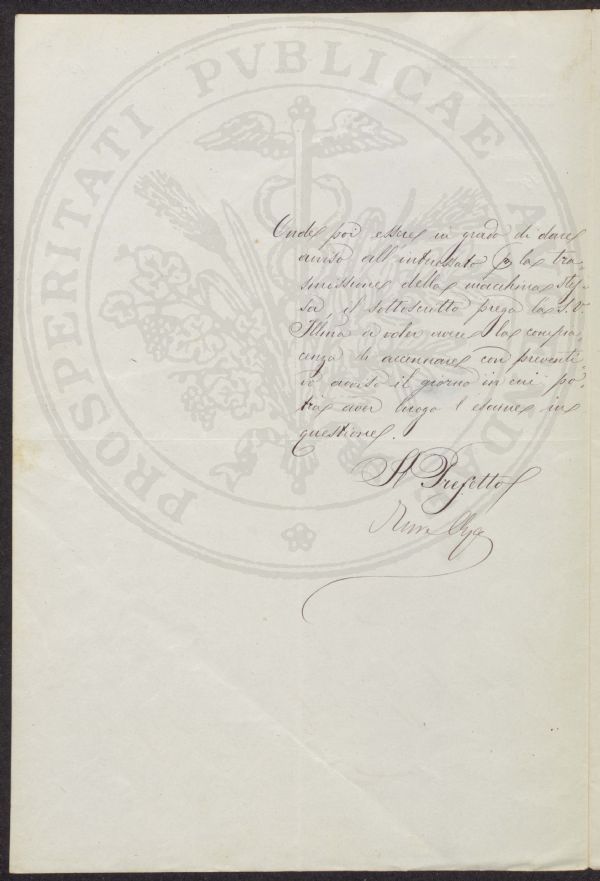 PROSPERITATI PVBLICAE AVGENDAE
Onde poi essere in grado di dare
avviso all'interessato per la tra=
smissione della macchina stes=
sa, il sottoscritto prega la S.V.
Illma a voler avere la compia=
cenza di accennare con preventi=
vo avviso il giorno in cui po=
trà aver luogo l'esame in
questione.
Il Prefetto